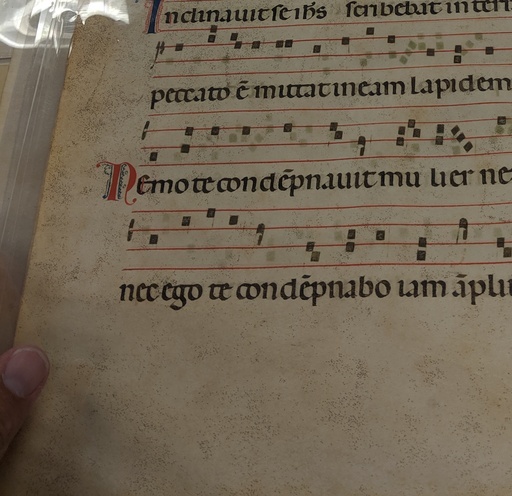 Inclinavit se ihs scribebat in terr
peccato ē mittat in eam lapidem
Nemo te condēpnavit mulier ne
nec ego te condēpnabo iam āpli